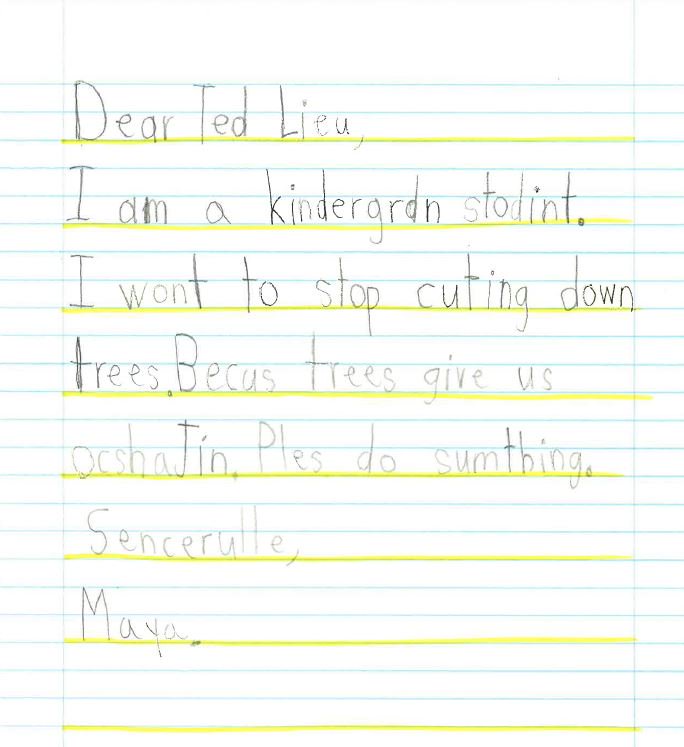 Dear Ted Lieu,
I am a kindergrdn stodint.
I wont to stop cuting down
trees. Becus trees give us
ocshaJin. Ples do sumthing.
Sencerulle,
Maya.